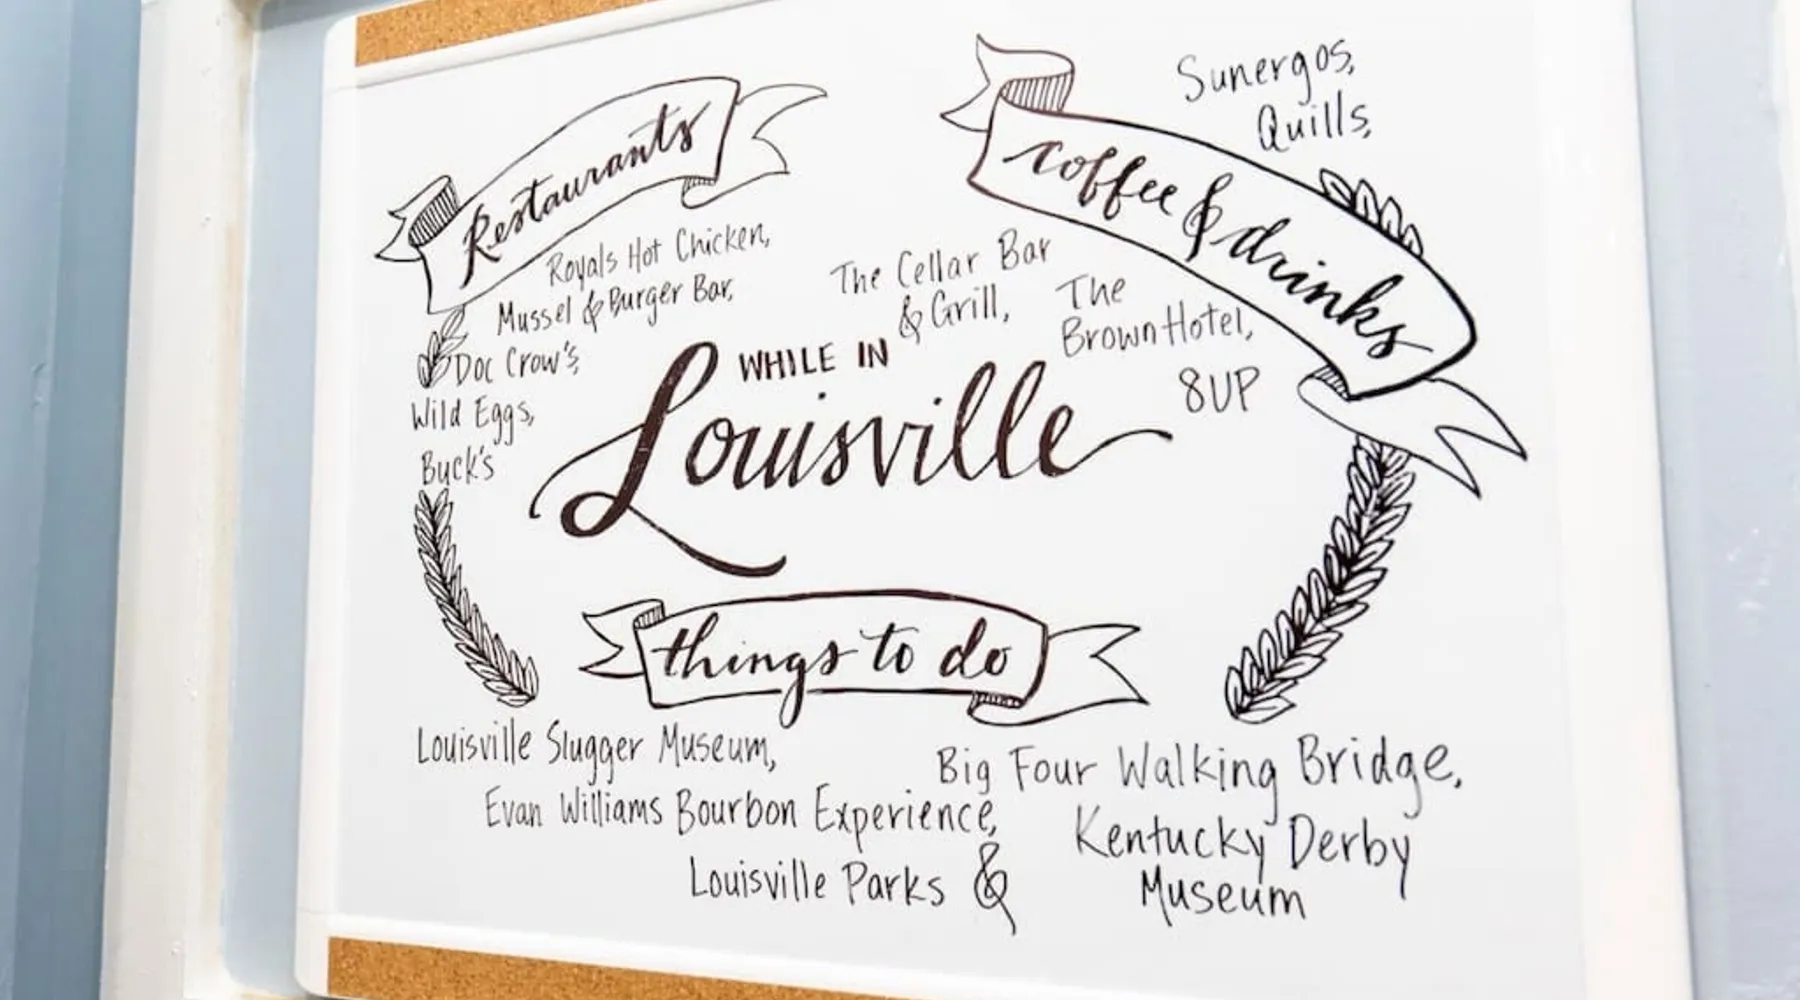 Restaurants
Royals Hot Chicken,
Mussel & Burger Bar,
Doc Crow's,
Wild Eggs,
Buck's
coffee & drinks
Sunergos,
Quills,
The Cellar Bar
& Grill,
The
Brown Hotel,
8UP
WHILE IN
Louisville
things to do
Louisville Slugger Museum,
Evan Williams Bourbon Experience,
Louisville Parks &
Big Four Walking Bridge,
Kentucky Derby
Museum